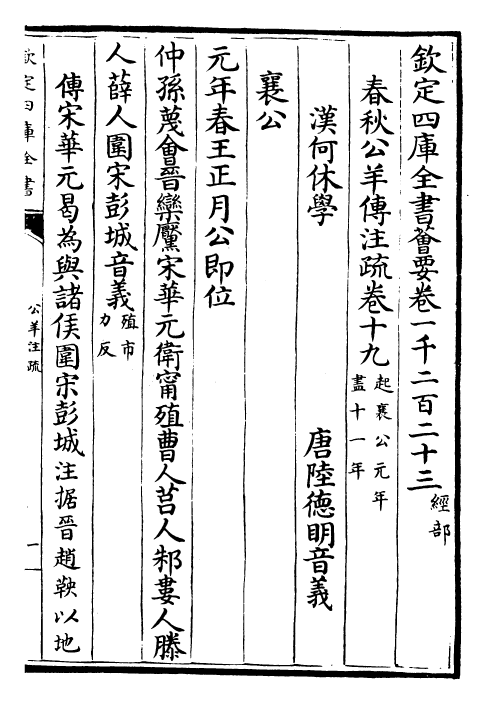 欽定四庫全書薈要卷一千二百二十三
經部
春秋公羊傳注疏卷十九
起襄公元年
盡十一年
漢何休學
唐陸德明音義
襄公
元年春王正月公即位
仲孫蔑會晉欒黶宋華元衛甯殖曹人莒人邾婁人滕
人薛人圍宋彭城音義
殖市
力反
傳宋華元曷為與諸侯圍宋彭城注据晉趙鞅以地
欽定四庫全書
公羊注疏
一